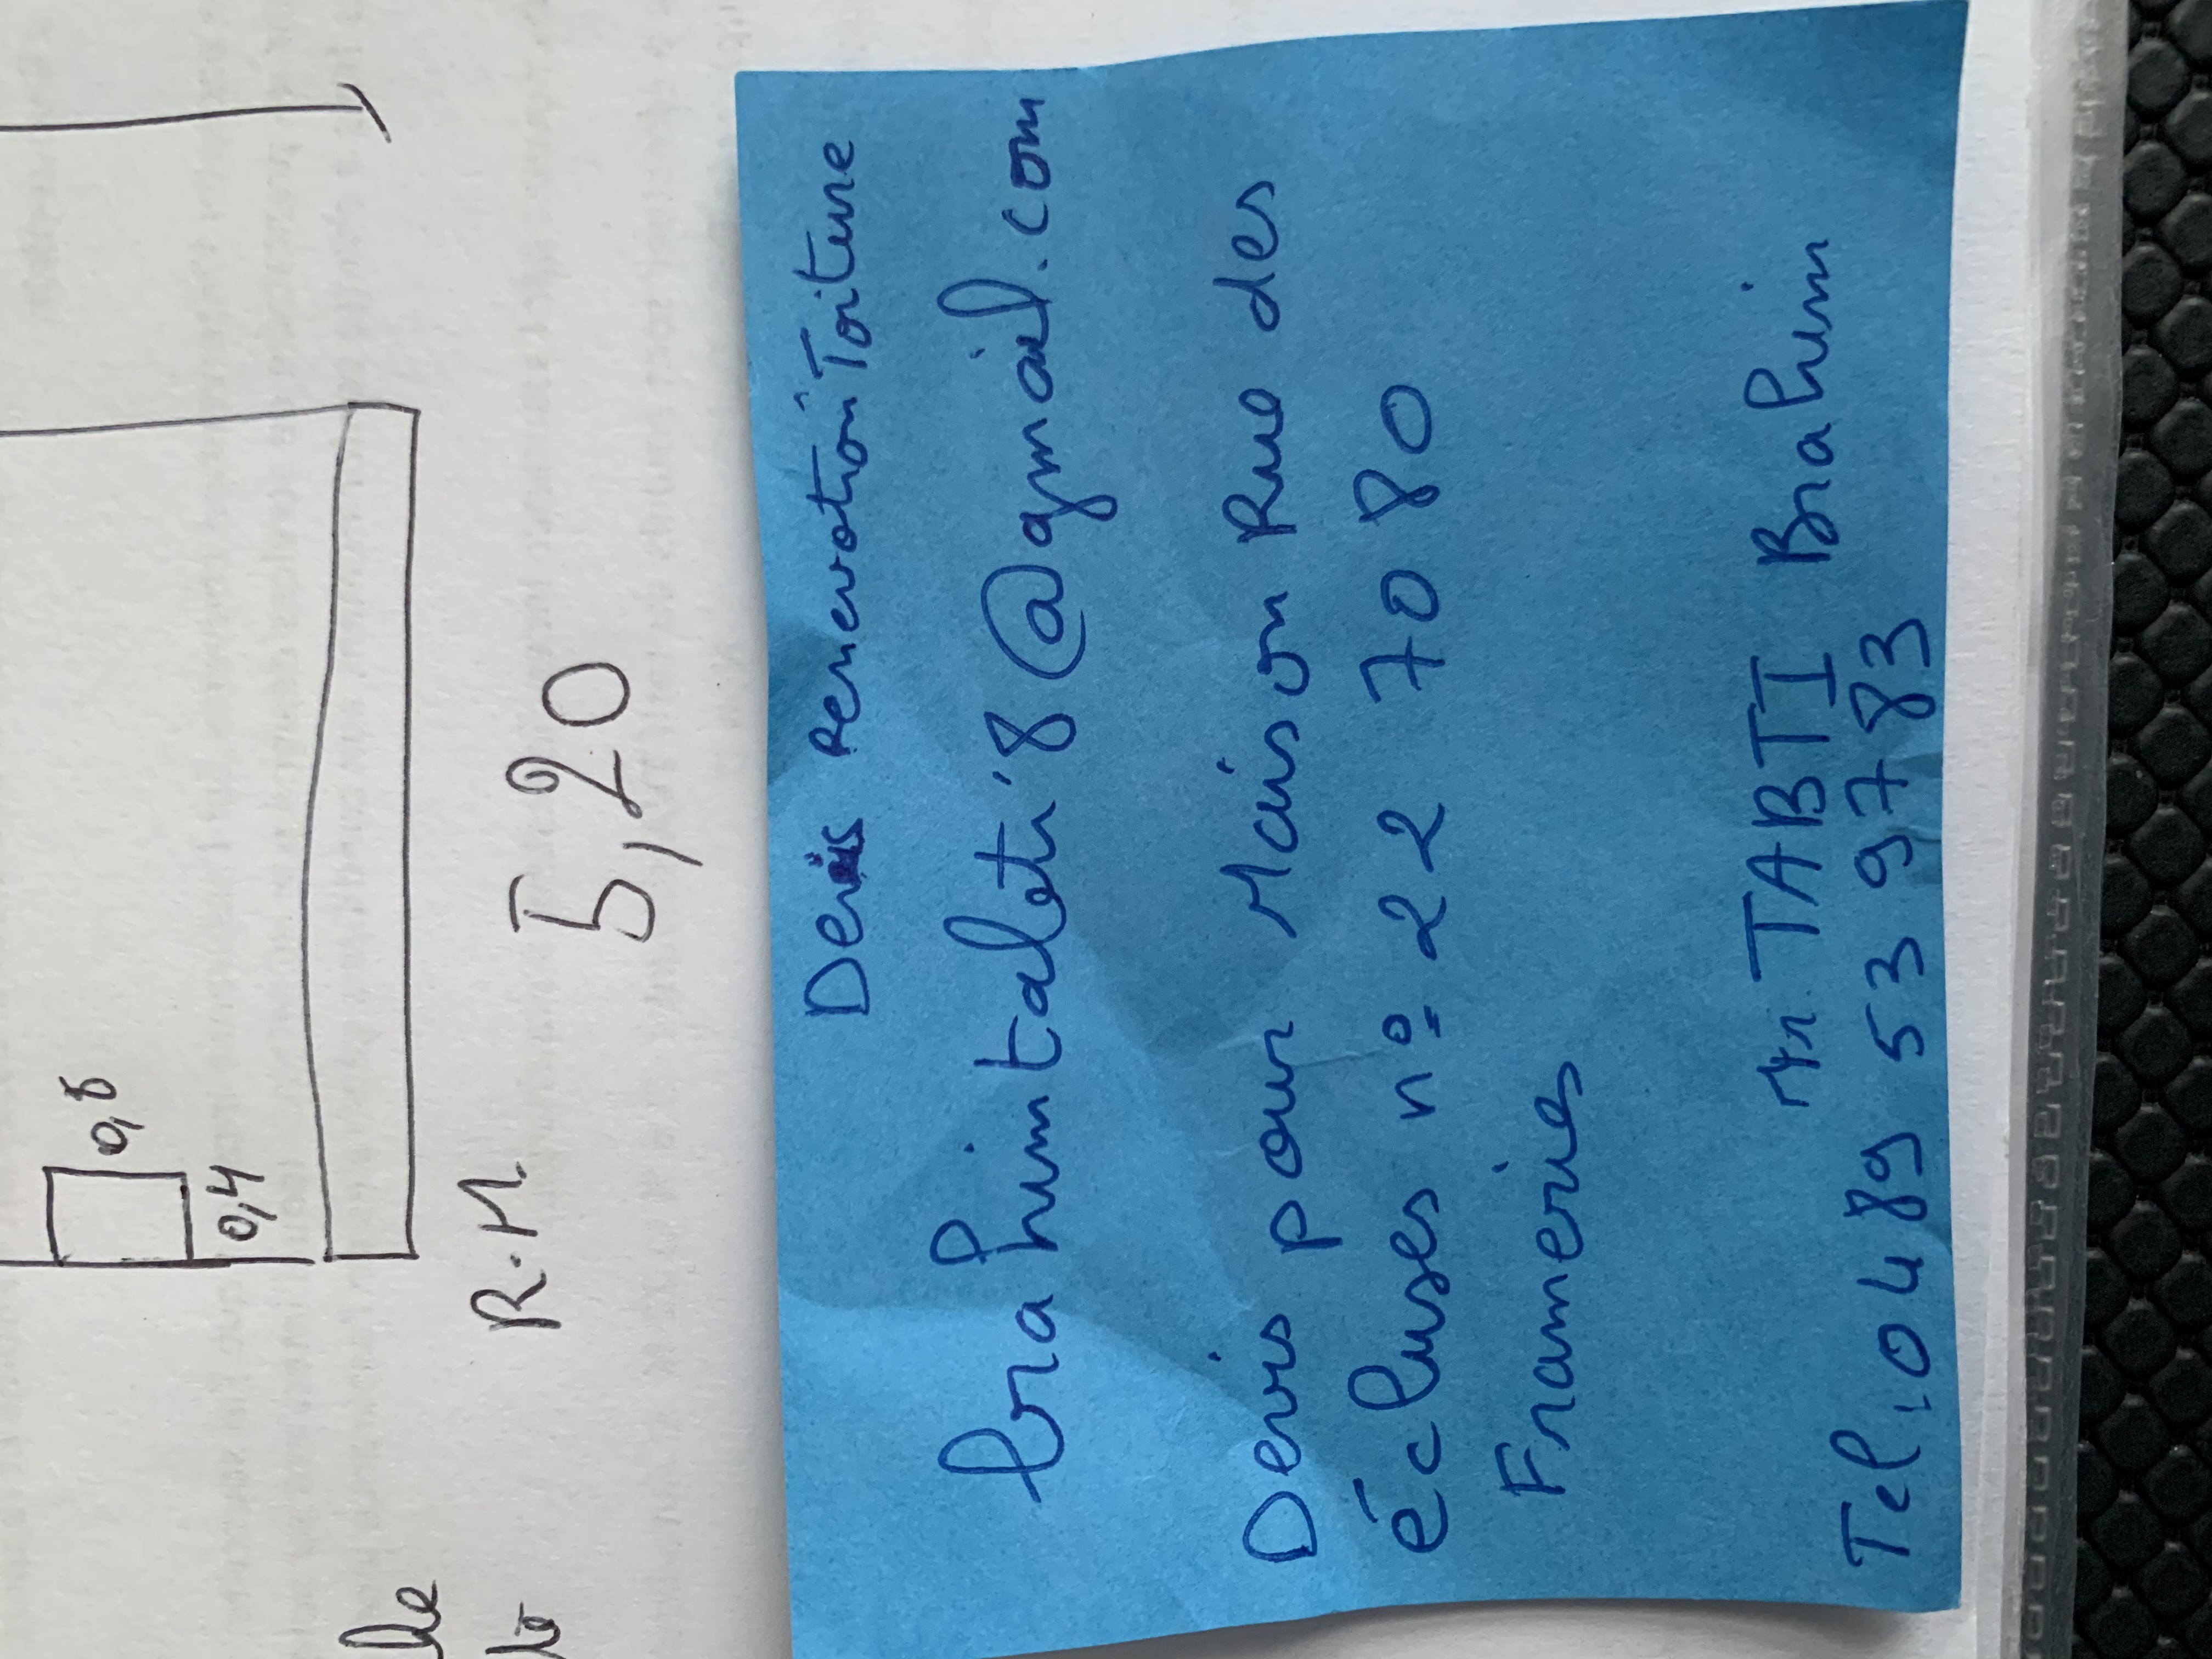 0,8
0,4
R.M.
5,20
Devis Renevotion Toiture
brahimtabeti'8@gmail.com
Devis pour Maison Rue des
écluses n° 22 7080
Frameries
Mr. TABTI Brahim
Tel: 0489 53 97 83